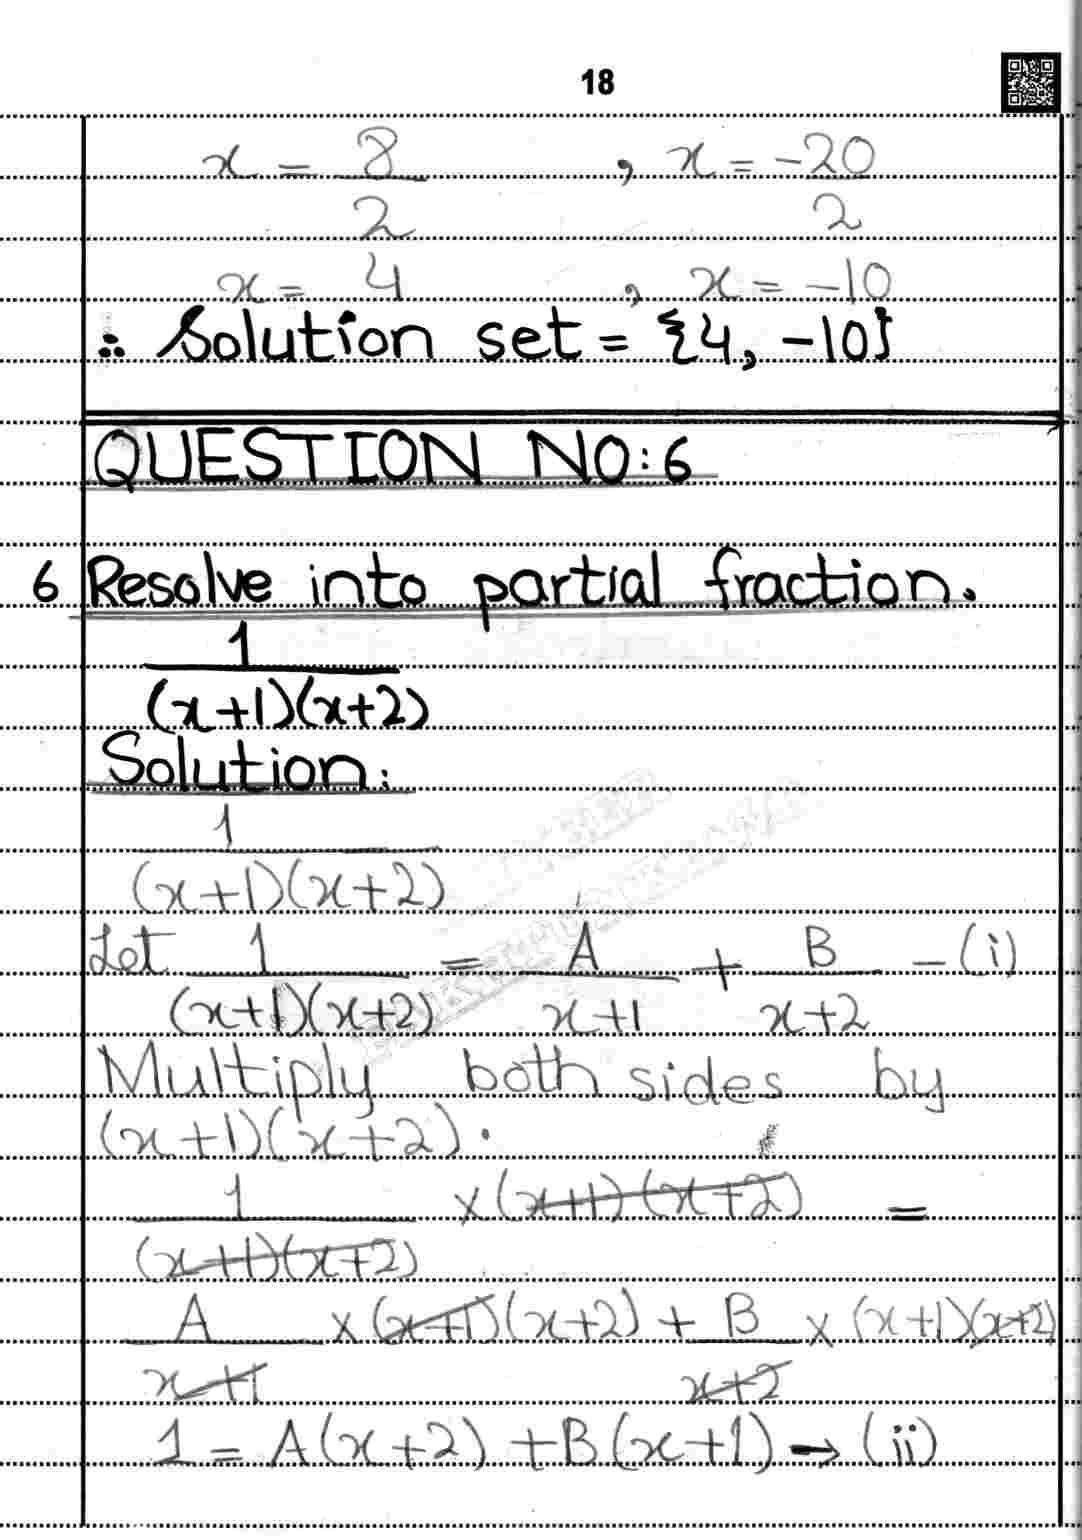 18
x = 8/2 , x = -20/2
x = 4 , x = -10
∴ Solution set = {4, -10}
QUESTION NO:6
6 Resolve into partial fraction.
1/(x+1)(x+2)
Solution:
1/(x+1)(x+2)
Let 1/(x+1)(x+2) = A/x+1 + B/x+2 - (i)
Multiply both sides by
(x+1)(x+2).
1/(x+1)(x+2) × (x+1)(x+2) =
A/x+1 × (x+1)(x+2) + B/x+2 × (x+1)(x+2)
1 = A(x+2) + B(x+1) → (ii)